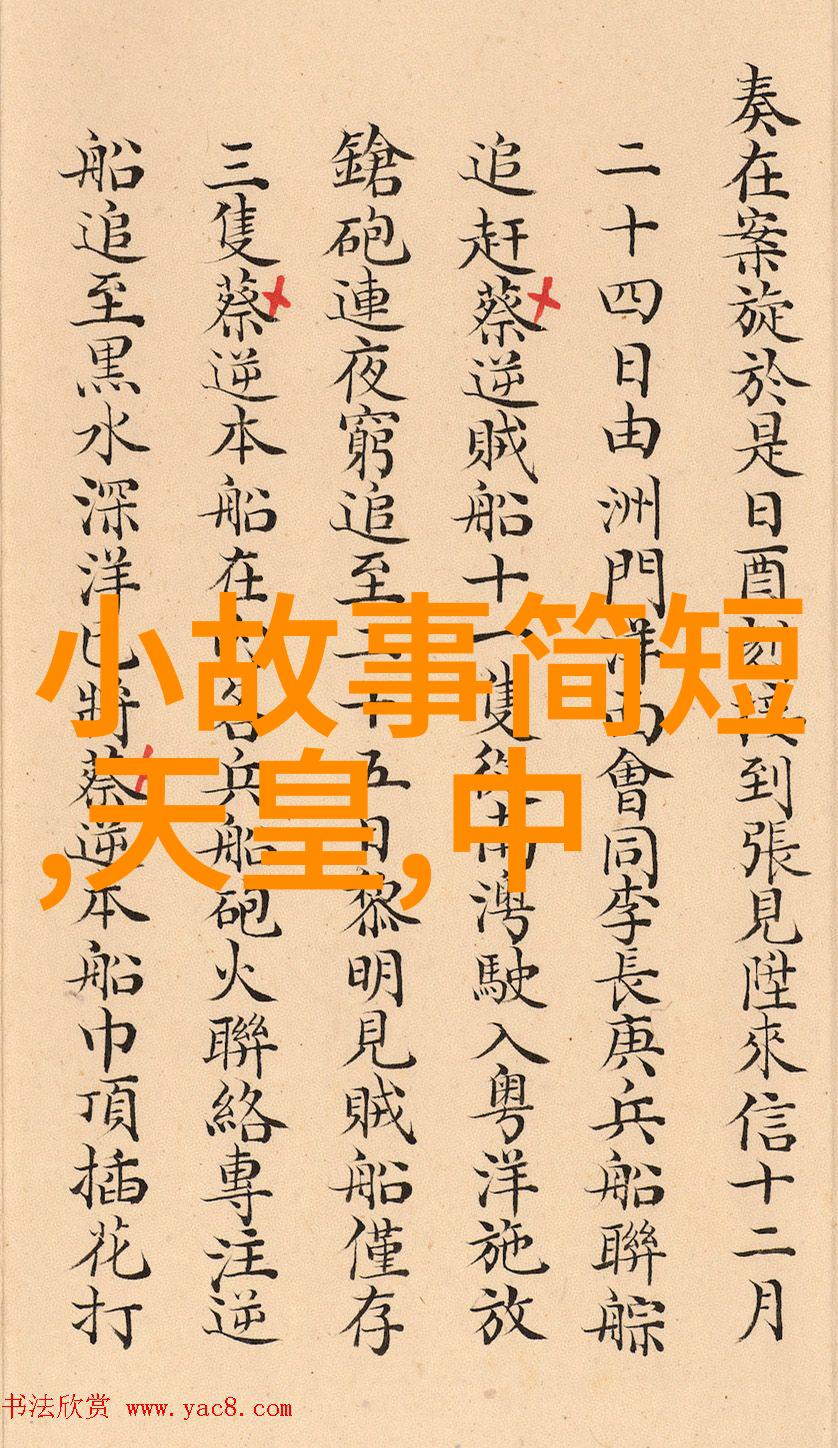 奏在案旋於是日酉刻接到張見陞來信十二月
二十四日由洲門洋面會同李長庚兵船聯䑸
追赶蔡逆賊船十一隻南澳駛入粵洋施放
鎗砲連夜窮追至二十五日黎明見賊船僅存
三隻蔡逆本船在內各兵船砲火聯絡專注逆
船追至黑水深洋已將蔡逆本船巾頂插花打
小故事简短
,天皇,中
书法欣赏 www.yac8.com